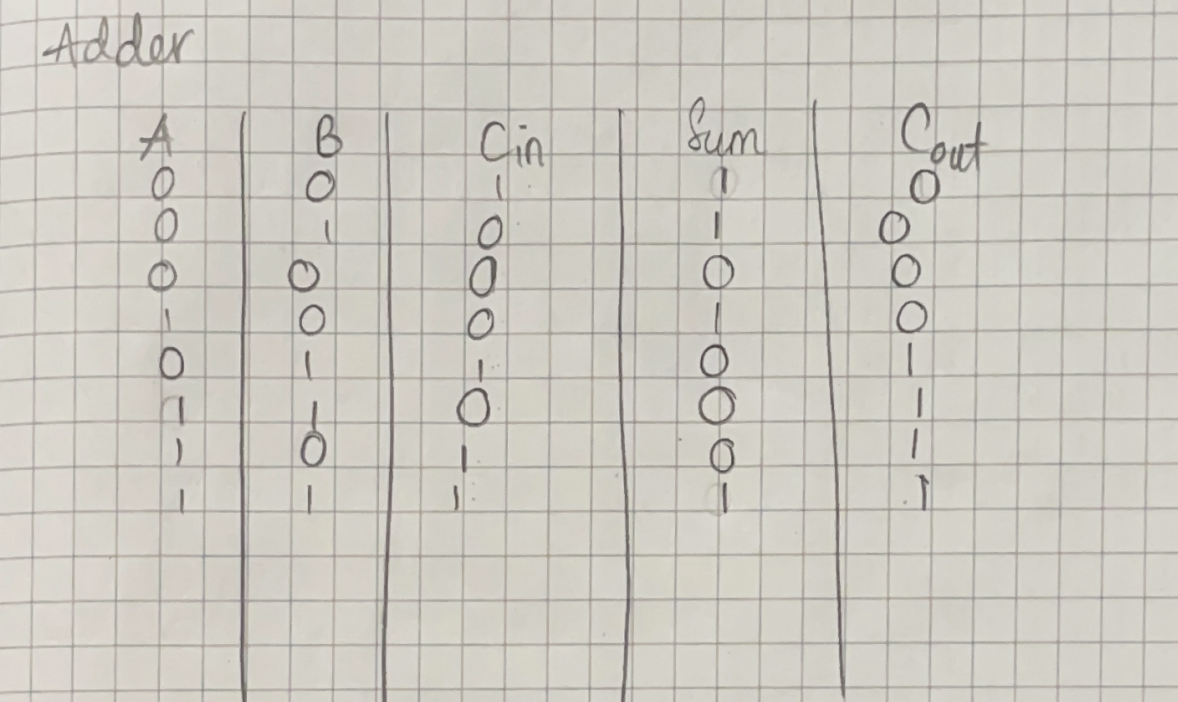 Adder
A B Cin Sum Cout
0 0 1 1 0
0 1 0 1 0
0 0 0 0 0
1 0 0 1 0
0 1 1 0 1
1 1 0 0 1
1 0 1 0 1
1 1 1 1 1